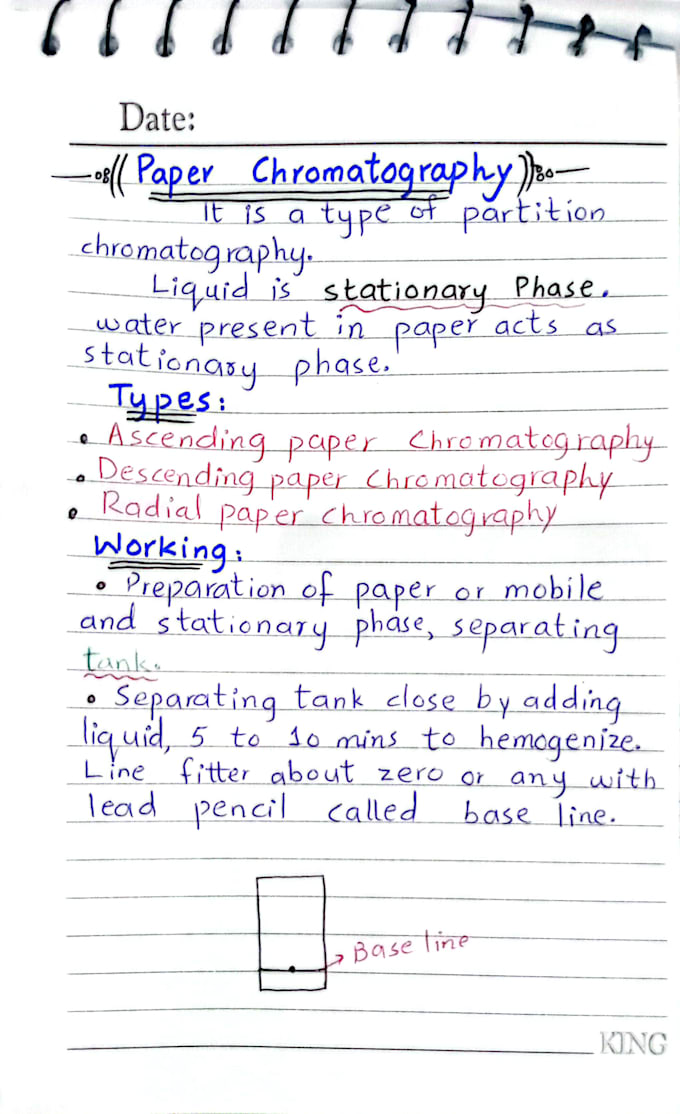 Date:
Paper Chromatography
It is a type of partition
chromatography.
Liquid is stationary Phase.
water present in paper acts as
stationary phase.
Types:
• Ascending paper Chromatography
• Descending paper Chromatography
• Radial paper chromatography
Working:
• Preparation of paper or mobile
and stationary phase, separating
tank.
• Separating tank close by adding
liquid, 5 to 10 mins to hemogenize.
Line fitter about zero or any with
lead pencil called base line.
Base line
KING